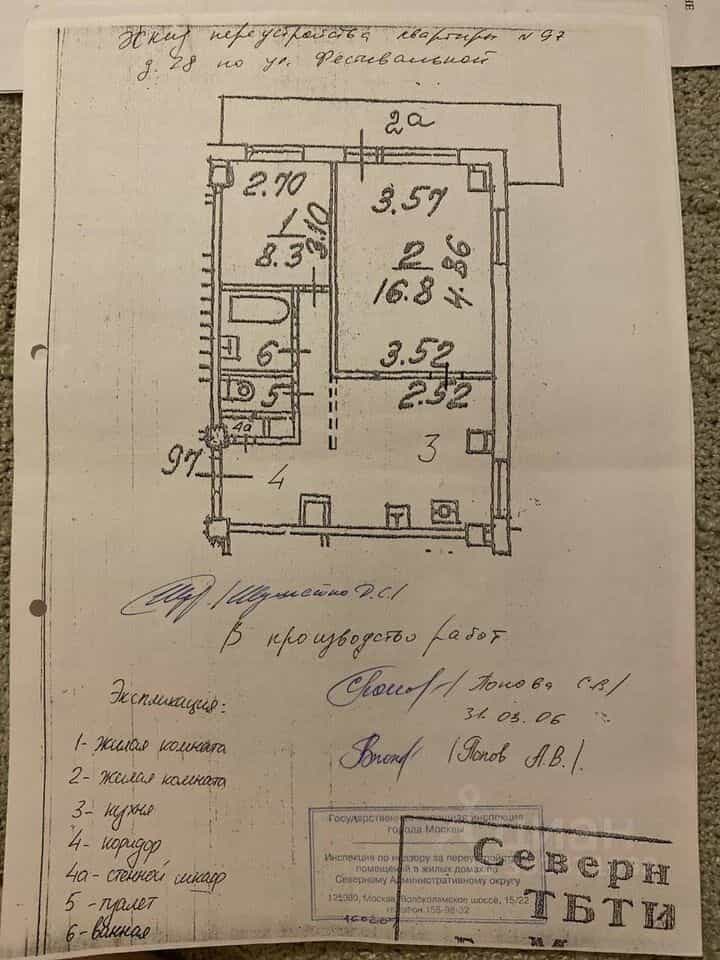 Эскиз переустройства квартиры N 97
д. 28 по ул. Фестивальной
2а
2.70
1
8.3
3.10
3.57
2
16.8
4.86
3.52
6
5
2.52
4а
3
97
4
В производство работ
Экспликация:
/Попова С.В/
31.03.06
1- жилая комната
/Попов А.В./.
2- жилая комната
3- кухня
4- коридор
4а- стенной шкаф
5 - туалет
6- ванная
Государственная жилищная инспекция
города Москвы
Инспекция по надзору за переустройством
помещений в жилых домах по
Северному Административному округу
125080, Москва, Волоколамское шоссе, 15/22
телефон 158-98-32
циан
Северн
ТБТИ